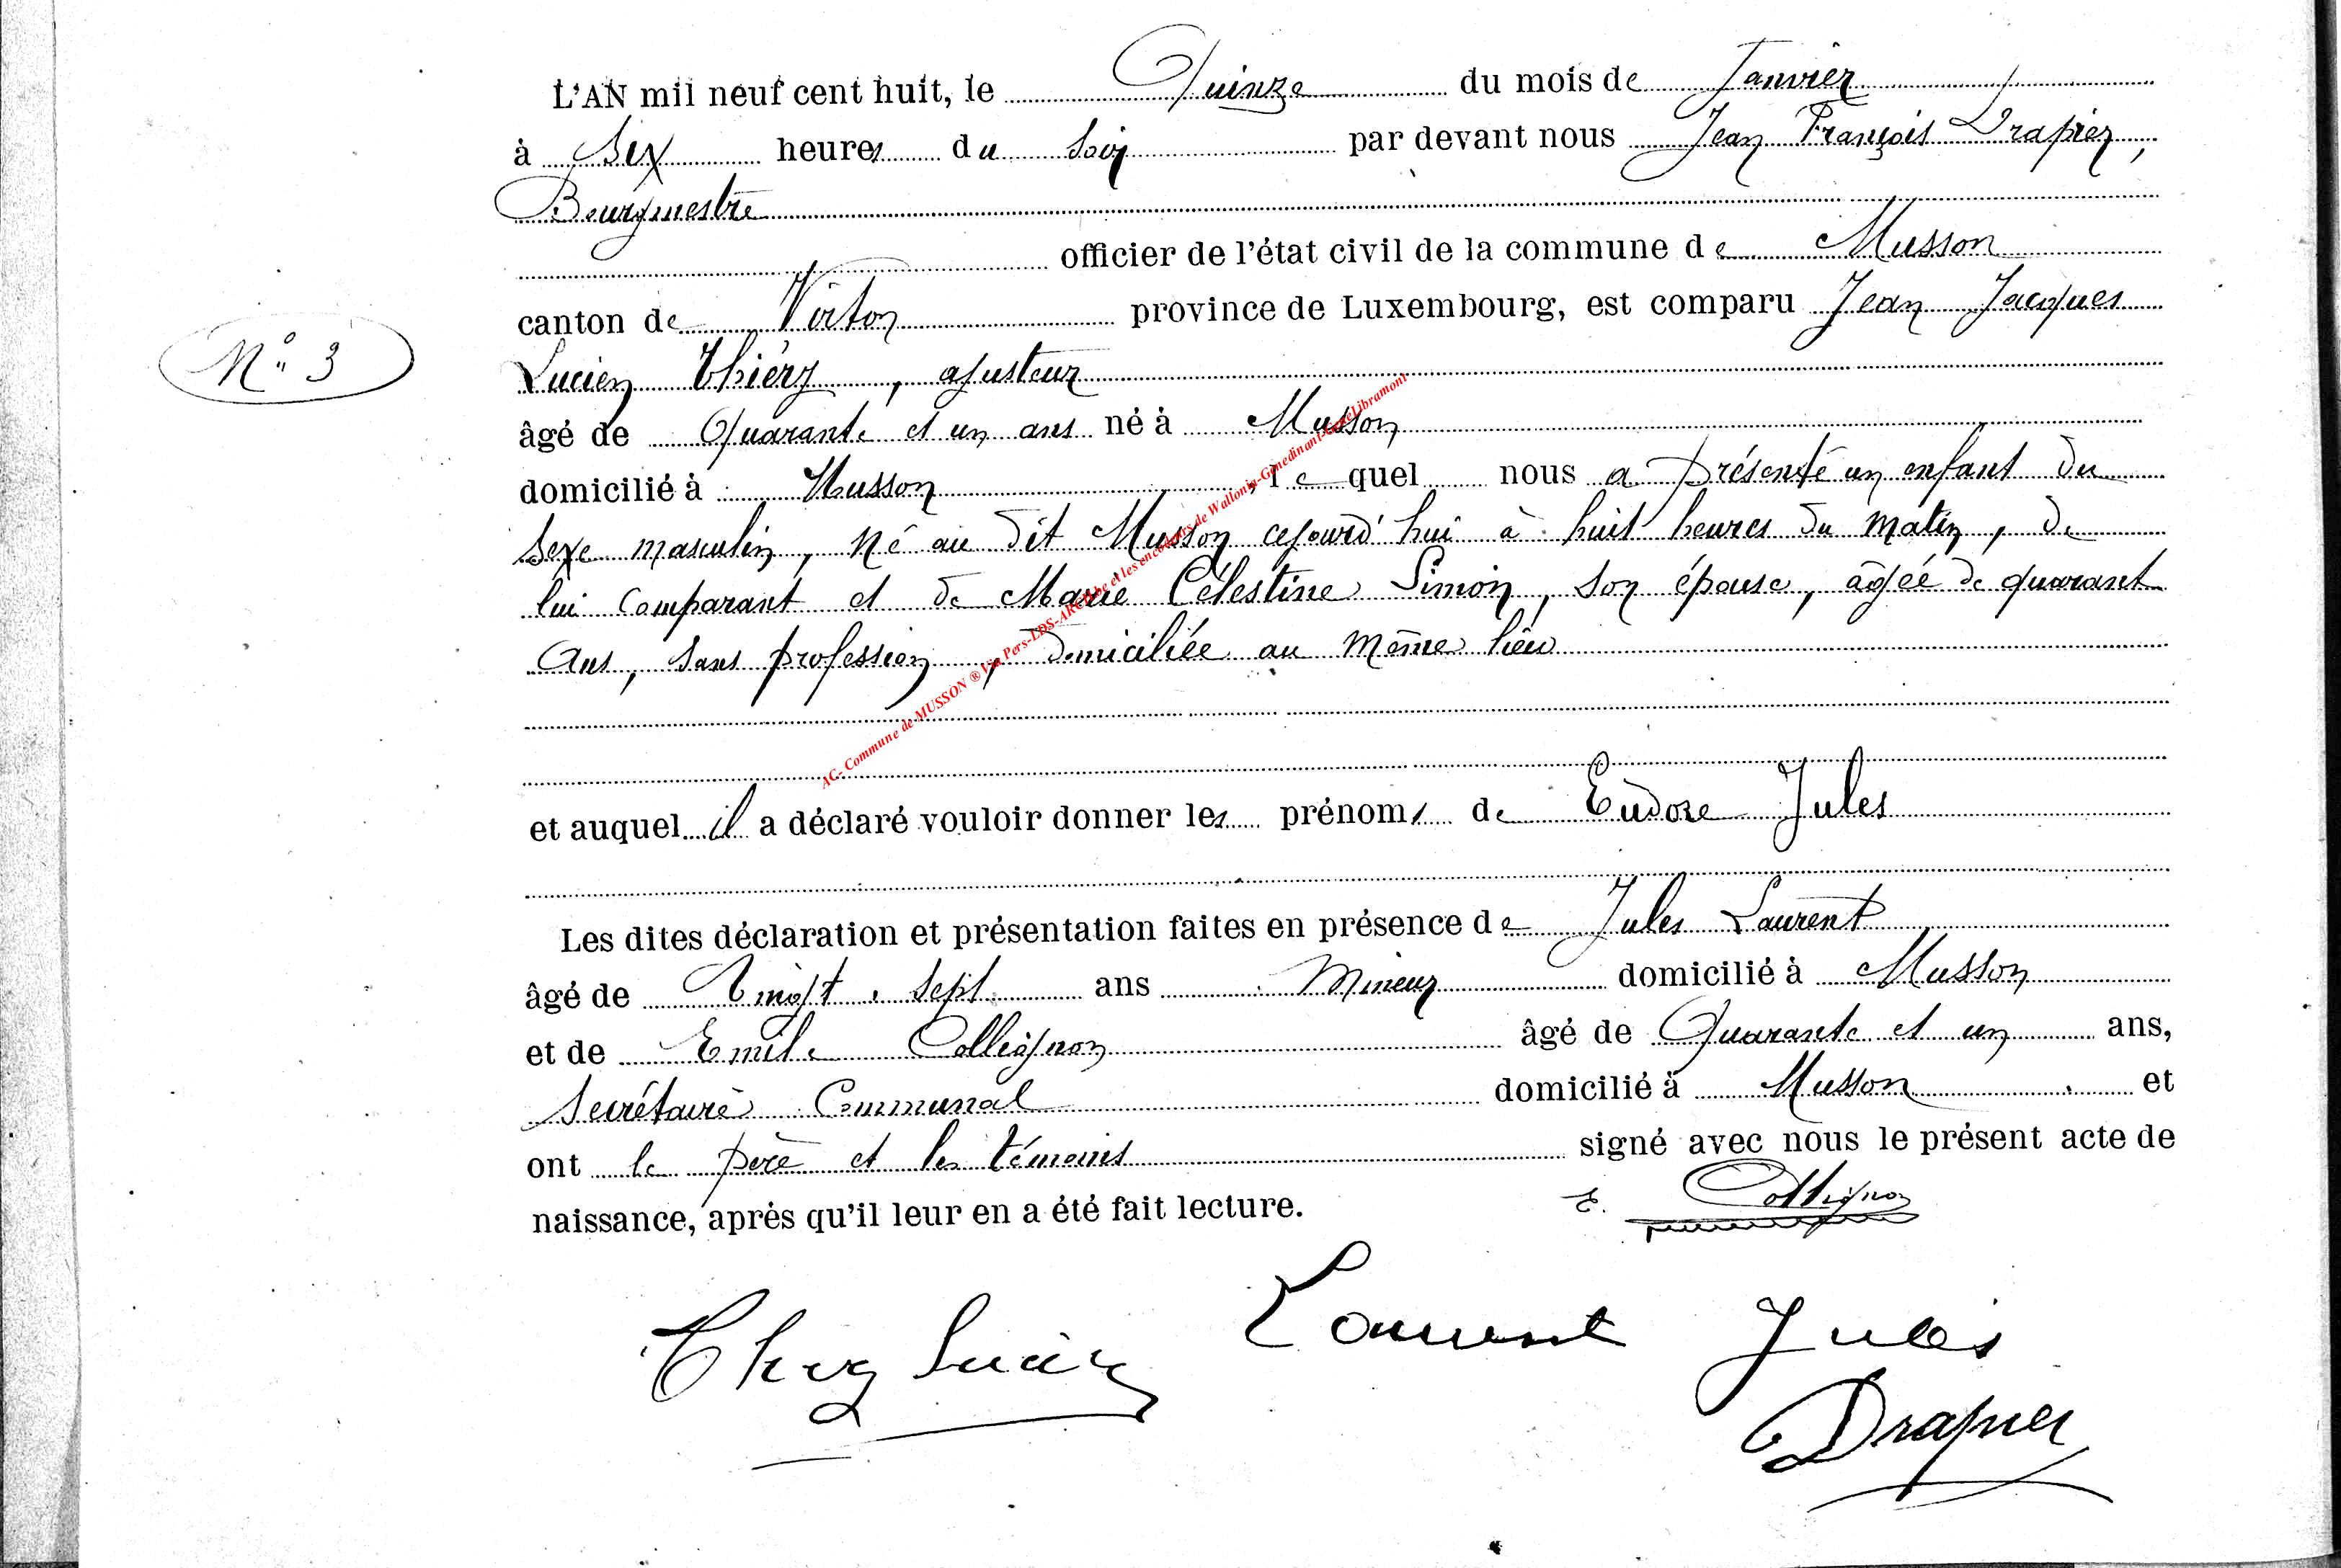 L'AN mil neuf cent huit, le Quinze du mois de Janvier
à Six heures du Soir par devant nous Jean François Drapier,
Bourgmestre
officier de l'état civil de la commune de Musson
canton de Virton province de Luxembourg, est comparu Jean Jacques
N° 3
Lucien Thiéry, ajusteur
âgé de Quarante et un ans né à Musson
domicilié à Musson, lequel nous a présenté un enfant du
Sexe masculin, né au dit Musson cejourd'hui à huit heures du matin, de
lui Comparant et de Marie Célestine Simon, son épouse, âgée de quarante
Ans, sans profession, domiciliée au même lieu
AC- Commune de MUSSON ® Via Pers-LDS-ARCH.be et les encodeurs de Wallonia-Genedinant-GeneLibramont
et auquel il a déclaré vouloir donner les prénoms de Eudore Jules
Les dites déclaration et présentation faites en présence de Jules Laurent
âgé de Vingt-sept ans Mineur domicilié à Musson
et de Emile Collignon âgé de Quarante et un ans,
Secrétaire Communal domicilié à Musson et
ont le père et les témoins signé avec nous le présent acte de
naissance, après qu'il leur en a été fait lecture.
E. Collignon
Thiery Lucien Laurent Jules
Drapier